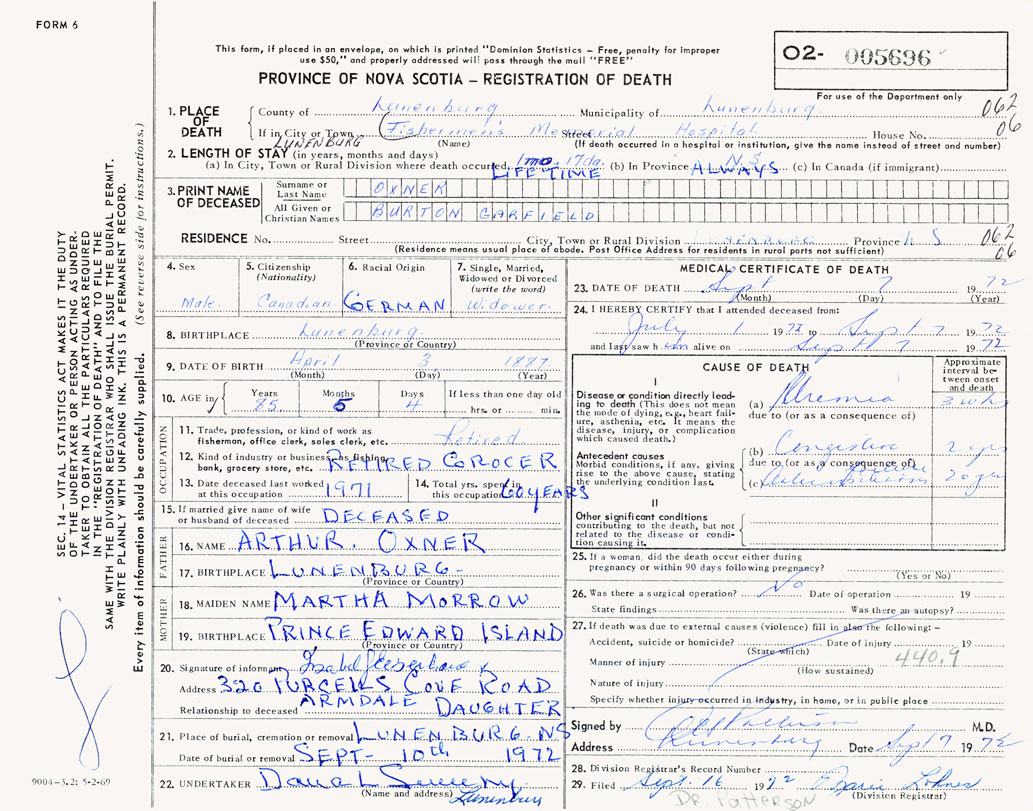 FORM 6
This form, if placed in an envelope, on which is printed "Dominion Statistics – Free, penalty for improper
use $50," and properly addressed will pass through the mail "FREE"
PROVINCE OF NOVA SCOTIA – REGISTRATION OF DEATH
O2- 005696
For use of the Department only
SEC. 14 – VITAL STATISTICS ACT MAKES IT THE DUTY
OF THE UNDERTAKER OR PERSON ACTING AS UNDER-
TAKER TO OBTAIN ALL THE PARTICULARS REQUIRED
IN THE "REGISTRATION OF DEATH" AND TO FILE THE
SAME WITH THE DIVISION REGISTRAR WHO SHALL ISSUE THE BURIAL PERMIT.
WRITE PLAINLY WITH UNFADING INK. THIS IS A PERMANENT RECORD.
Every item of information should be carefully supplied. (See reverse side for instructions.)
1. PLACE OF DEATH County of Lunenburg Municipality of Lunenburg 062
If in City or Town LUNENBURG Fishermen's Memorial Hospital Street House No. 06
(Name) (If death occurred in a hospital or institution, give the name instead of street and number)
2. LENGTH OF STAY (in years, months and days)
(a) In City, Town or Rural Division where death occurred 1 mo. 17 da. LIFETIME (b) In Province N.S. ALWAYS (c) In Canada (if immigrant)
3. PRINT NAME OF DECEASED Surname or Last Name OXNER
All Given or Christian Names BURTON GARFIELD
RESIDENCE No. Street City, Town or Rural Division LUNENBURG Province N S 062
(Residence means usual place of abode. Post Office Address for residents in rural parts not sufficient) 06
4. Sex Male.
5. Citizenship (Nationality) Canadian
6. Racial Origin GERMAN
7. Single, Married, Widowed or Divorced (write the word) Widower.
8. BIRTHPLACE Lunenburg
(Province or Country)
9. DATE OF BIRTH April 3 1887
(Month) (Day) (Year)
10. AGE in Years 85 Months 5 Days 4 If less than one day old hrs. or min.
OCCUPATION
11. Trade, profession, or kind of work as
fisherman, office clerk, sales clerk, etc. Retired
12. Kind of industry or business, as fishing,
bank, grocery store, etc. RETIRED GROCER
13. Date deceased last worked at this occupation 1971
14. Total yrs. spent in this occupation 60 YEARS
15. If married give name of wife
or husband of deceased DECEASED
FATHER
16. NAME ARTHUR. OXNER
17. BIRTHPLACE LUNENBURG-
(Province or Country)
MOTHER
18. MAIDEN NAME MARTHA MORROW
19. BIRTHPLACE PRINCE EDWARD ISLAND
(Province or Country)
20. Signature of informant Isabel
Address 320 PURCELLS COVE ROAD
ARMDALE
Relationship to deceased DAUGHTER
21. Place of burial, cremation or removal LUNENBURG-NS
Date of burial or removal SEPT- 10th 1972
22. UNDERTAKER Lunenburg
(Name and address)
9004-3.2: 5-2-69
MEDICAL CERTIFICATE OF DEATH
23. DATE OF DEATH Sept 7 1972
(Month) (Day) (Year)
24. I HEREBY CERTIFY that I attended deceased from:
July 1 1971 to Sept 7 1972
and last saw him alive on Sept 7 1972
CAUSE OF DEATH
Approximate interval between onset and death
I
Disease or condition directly leading to death (This does not mean
the mode of dying, e.g., heart failure, asthenia, etc. It means the
disease, injury, or complication
which caused death.)
(a) Uremia 3 wks
due to (or as a consequence of)
Antecedent causes
Morbid conditions, if any, giving
rise to the above cause, stating
the underlying condition last.
(b) Congestive failure 2 yrs
due to (or as a consequence of)
(c) Arteriosclerosis 20 yrs
II
Other significant conditions
contributing to the death, but not
related to the disease or condition causing it.
25. If a woman, did the death occur either during
pregnancy or within 90 days following pregnancy?
(Yes or No)
26. Was there a surgical operation? No Date of operation 19
State findings Was there an autopsy?
27. If death was due to external causes (violence) fill in also the following: –
Accident, suicide or homicide? Date of injury 19
(State which)
Manner of injury 440.9
(How sustained)
Nature of injury
Specify whether injury occurred in industry, in home, or in public place
Signed by Patterson M.D.
Address Lunenburg Date Sept 7 1972
28. Division Registrar's Record Number
29. Filed Sept. 16 1972 Marie Lohnes
(Division Registrar)
DR. PATTERSON